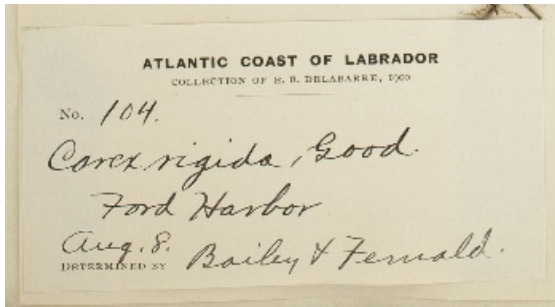 ATLANTIC COAST OF LABRADOR
COLLECTION OF E. B. DELABARRE, 1900
No. 104.
Carex rigida, Good.
Ford Harbor
Aug. 8.
DETERMINED BY Bailey & Fernald.